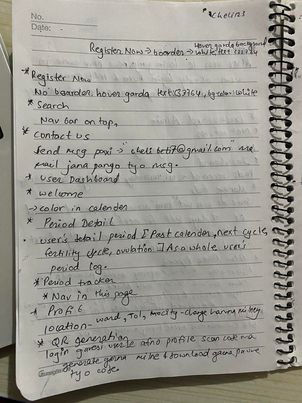 No.
Date:
Register Now → boarder →
Hover garda background
white text
* Register Now
No boarder, hover garda text
* Search
Nav bar on top,
* Contact us
Send msg paxi → gmail.com" ma
mail jana paryo tyo msg.
* User Dashboard
* welcome
→ color in calender
* Period Detail
user's detail period [Past calender, next cycle,
fertility cycle, ovulation.] As a whole user's
period log.
* Period tracker
* Nav in this page
* Profile
location - ward, Tol, change garna milney
* QR generation
login garesi user le afno profile scan code ma
generate garna milne & download garna paune
tyo code